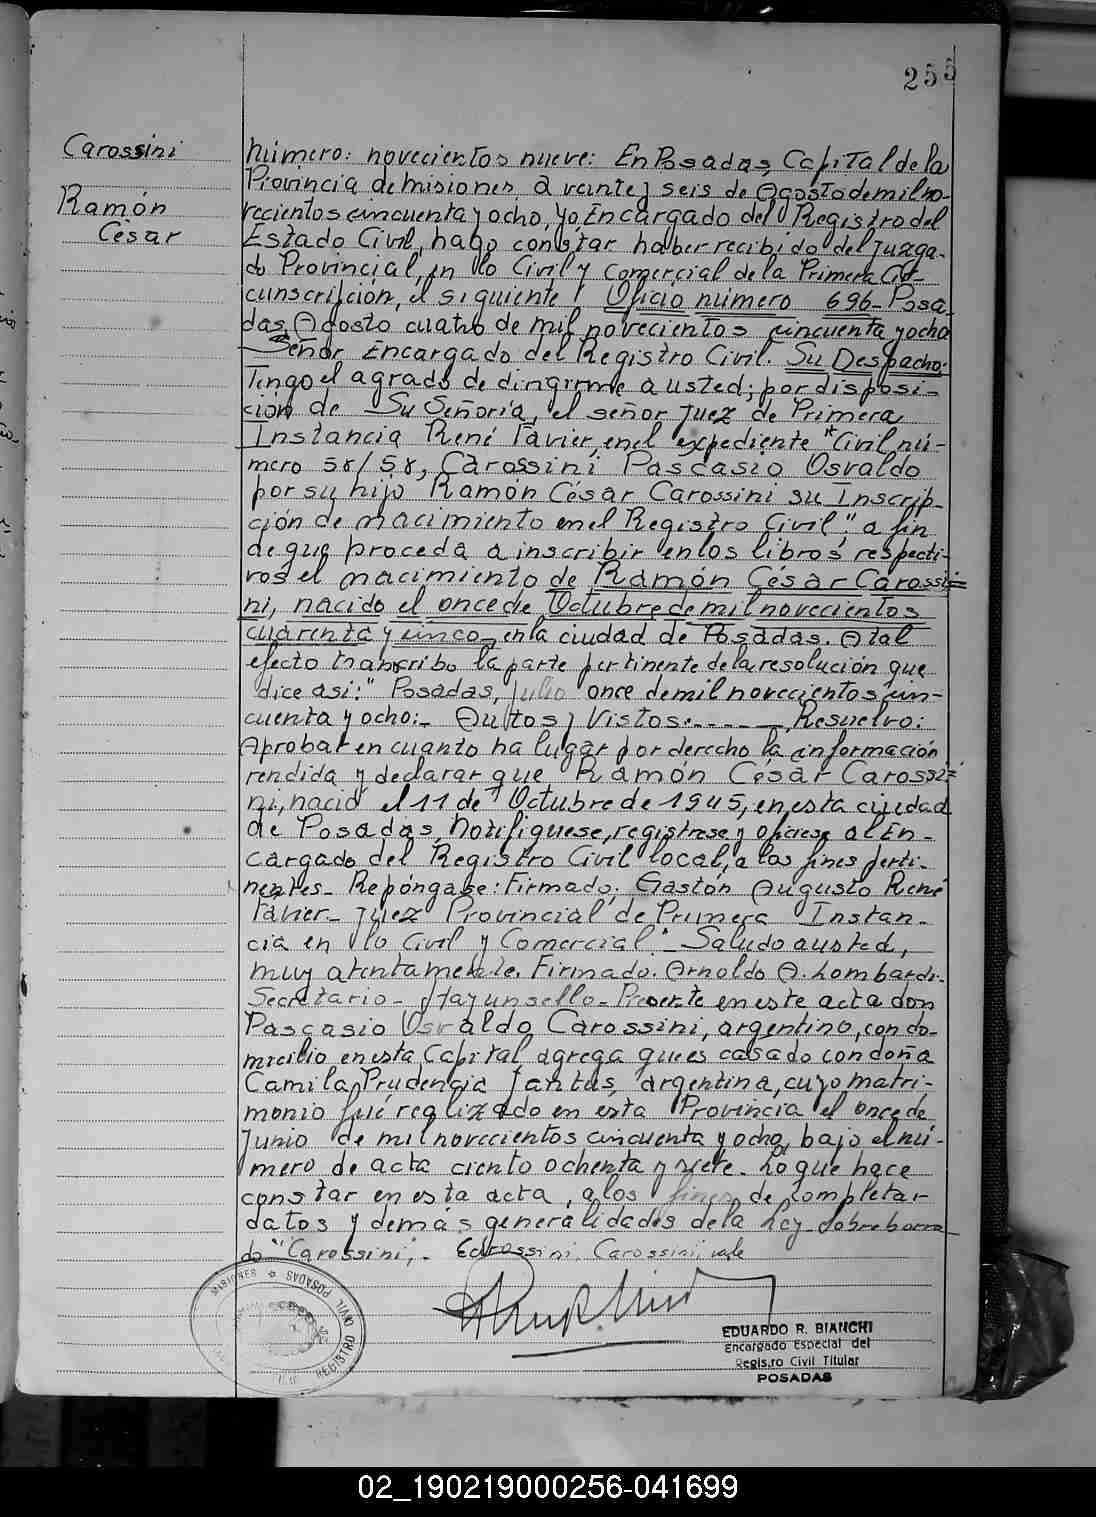 255
Carossini
Ramón
César
Número: novecientos nueve: En Posadas, Capital de la
Provincia de misiones a veinte y seis de Agosto de mil no-
vecientos cincuenta y ocho, yo, Encargado del Registro del
Estado Civil, hago constar haber recibido del Juzga-
do Provincial, en lo Civil y Comercial de la Primera Cir-
cunscripción, el siguiente: Oficio número 696- Posa
das, Agosto cuatro de mil novecientos cincuenta y ocho
Señor Encargado del Registro Civil. Su Despacho:
Tengo el agrado de dirigirme a usted; por disposi-
ción de Su Señoría, el señor Juez de Primera
Instancia René Tavier, en el expediente "Civil nú-
mero 58/58, Carossini Pascasio Osvaldo
por su hijo Ramón César Carossini su Inscrip-
ción de nacimiento en el Registro Civil", a fin
de que proceda a inscribir en los libros respecti-
vos el nacimiento de Ramón César Carossi=
ni, nacido el once de Octubre de mil novecientos
cuarenta y cinco, en la ciudad de Posadas. A tal
efecto transcribo la parte pertinente de la resolución que
dice así: "Posadas, Julio once de mil novecientos cin-
cuenta y ocho:- Autos y Vistos:------, Resuelvo:
Aprobar en cuanto ha lugar por derecho la información
rendida y declarar que Ramón César Carossi=
ni, nació el 11 de Octubre de 1945, en esta ciudad
de Posadas, Notifíquese, regístrese y ofíciese al En-
cargado del Registro Civil local, a los fines perti-
nentes- Repóngase: Firmado: Gastón Augusto René
Tavier- Juez Provincial de Primera Instan-
cia en lo Civil y Comercial." Saludo a usted,
muy atentamente. Firmado. Arnoldo A. Lombardi.
Secretario- Hay un sello- Presente en este acta don
Pascasio Osvaldo Carossini, argentino, con do-
micilio en esta Capital agrega que es casado con doña
Camila Prudencia Jantus, argentina, cuyo matri-
monio fué realizado en esta Provincia el once de
Junio de mil novecientos cincuenta y ocho, bajo el nú-
mero de acta ciento ochenta y siete. Lo que hace
constar en esta acta, a los fines de completar
datos y demás generalidades de la Ley. Sobreborra
do "Carossini,- Carossini, Carossini, vale
REGISTRO CIVIL POSADAS
MISIONES
EDUARDO R. BIANCHI
Encargado Especial del
Regis.ro Civil Titular
POSADAS
02_190219000256-041699